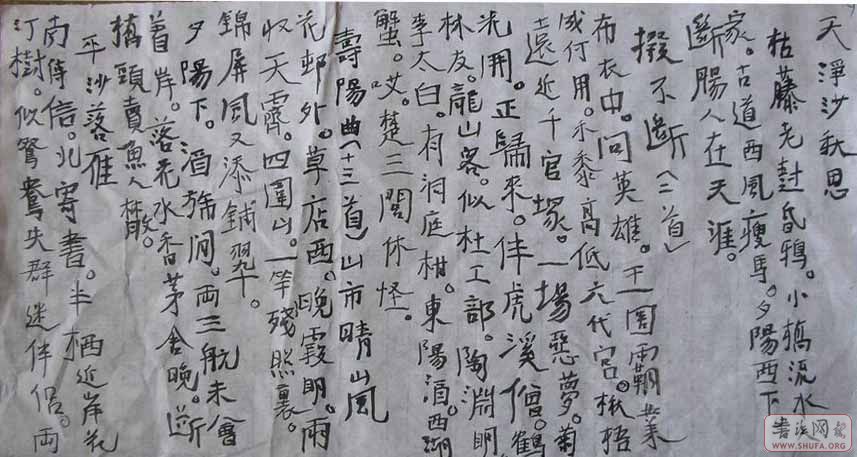 天淨沙秋思
枯藤老封昏鴉。小橋流水
家。古道西風瘦馬。夕陽西下
斷腸人在天涯。
撥不斷(二首)
布衣中。問英雄。王圖霸業
成何用。禾黍高低六代宮。楸梧
遠近千官塚。一場惡夢。菊
花開。正歸來。伴虎溪僧。鶴
林友。龍山客。似杜工部。陶淵明
李太白。有洞庭柑。東陽酒。西湖
蟹。哎。楚三閭休怪。
壽陽曲(十三首)山市晴山風
花邨外。草店西。晚霞明。雨
収天霽。四圍山。一竿殘照裏。
錦屏風又添鋪翠。
夕陽下。酒旆閒。兩三航未曾
着岸。落花水香茅舍晚。斷
橋頭賣魚人散。
平沙落雁
南傳信。北寄書。半栖近岸花
汀樹。似鴛鴦失群迷伴侶。兩
书法网
WWW.SHUFA.ORG